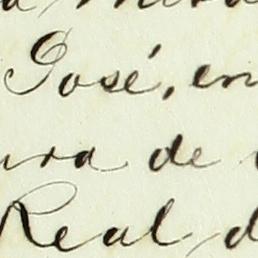 José, en
ura de
Real d